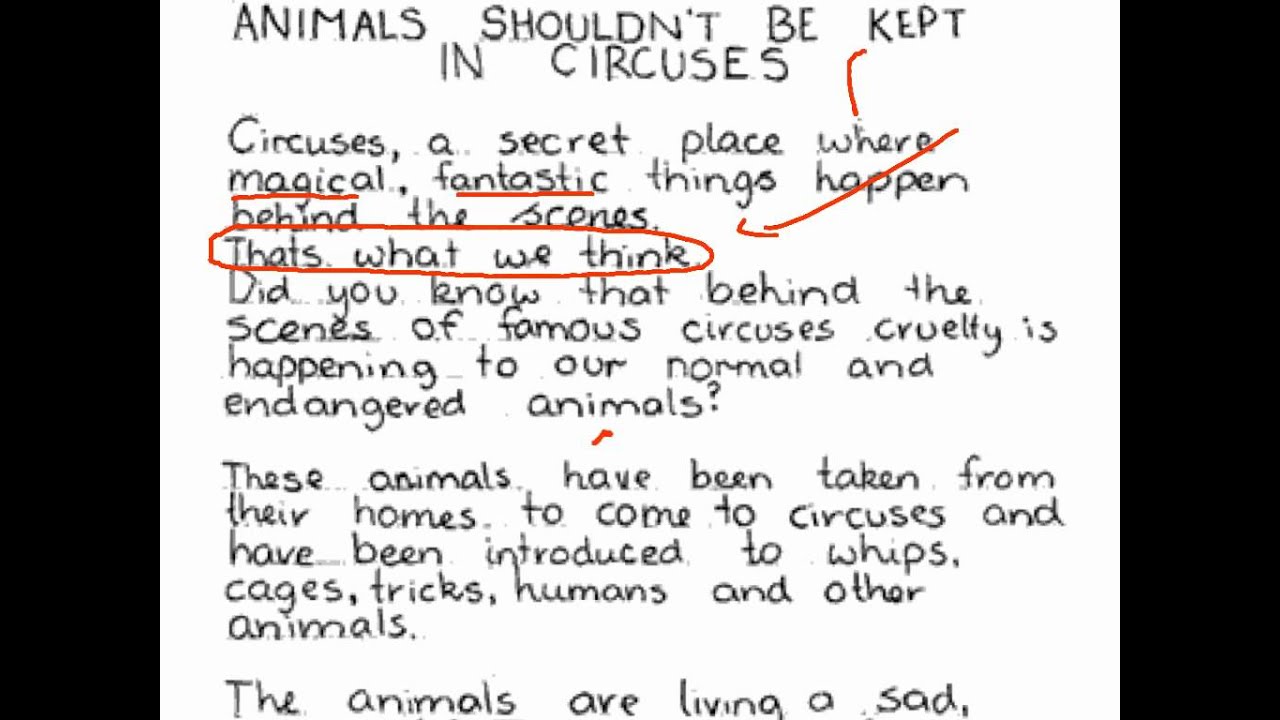 ANIMALS SHOULDN'T BE KEPT
IN CIRCUSES
Circuses, a secret place where
magical, fantastic things happen
behind the scenes.
Thats what we think.
Did you know that behind the
scenes of famous circuses cruelty is
happening to our normal and
endangered animals?
These animals have been taken from
their homes to come to circuses and
have been introduced to whips,
cages, tricks, humans and other
animals.
The animals are living a sad,